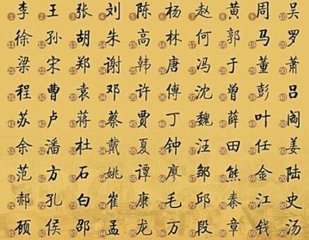 李王张刘陈杨赵黄周吴
徐孙胡朱高林何郭马罗
梁宋郑谢韩唐冯于董萧
程曹袁邓许傅沈曾彭吕
苏卢蒋蔡贾丁魏薛叶阎
余潘杜戴夏钟汪田任姜
范方石姚谭廖邹熊金陆
郝孔白崔康毛邱秦江史
顾侯邵孟龙万段章钱汤